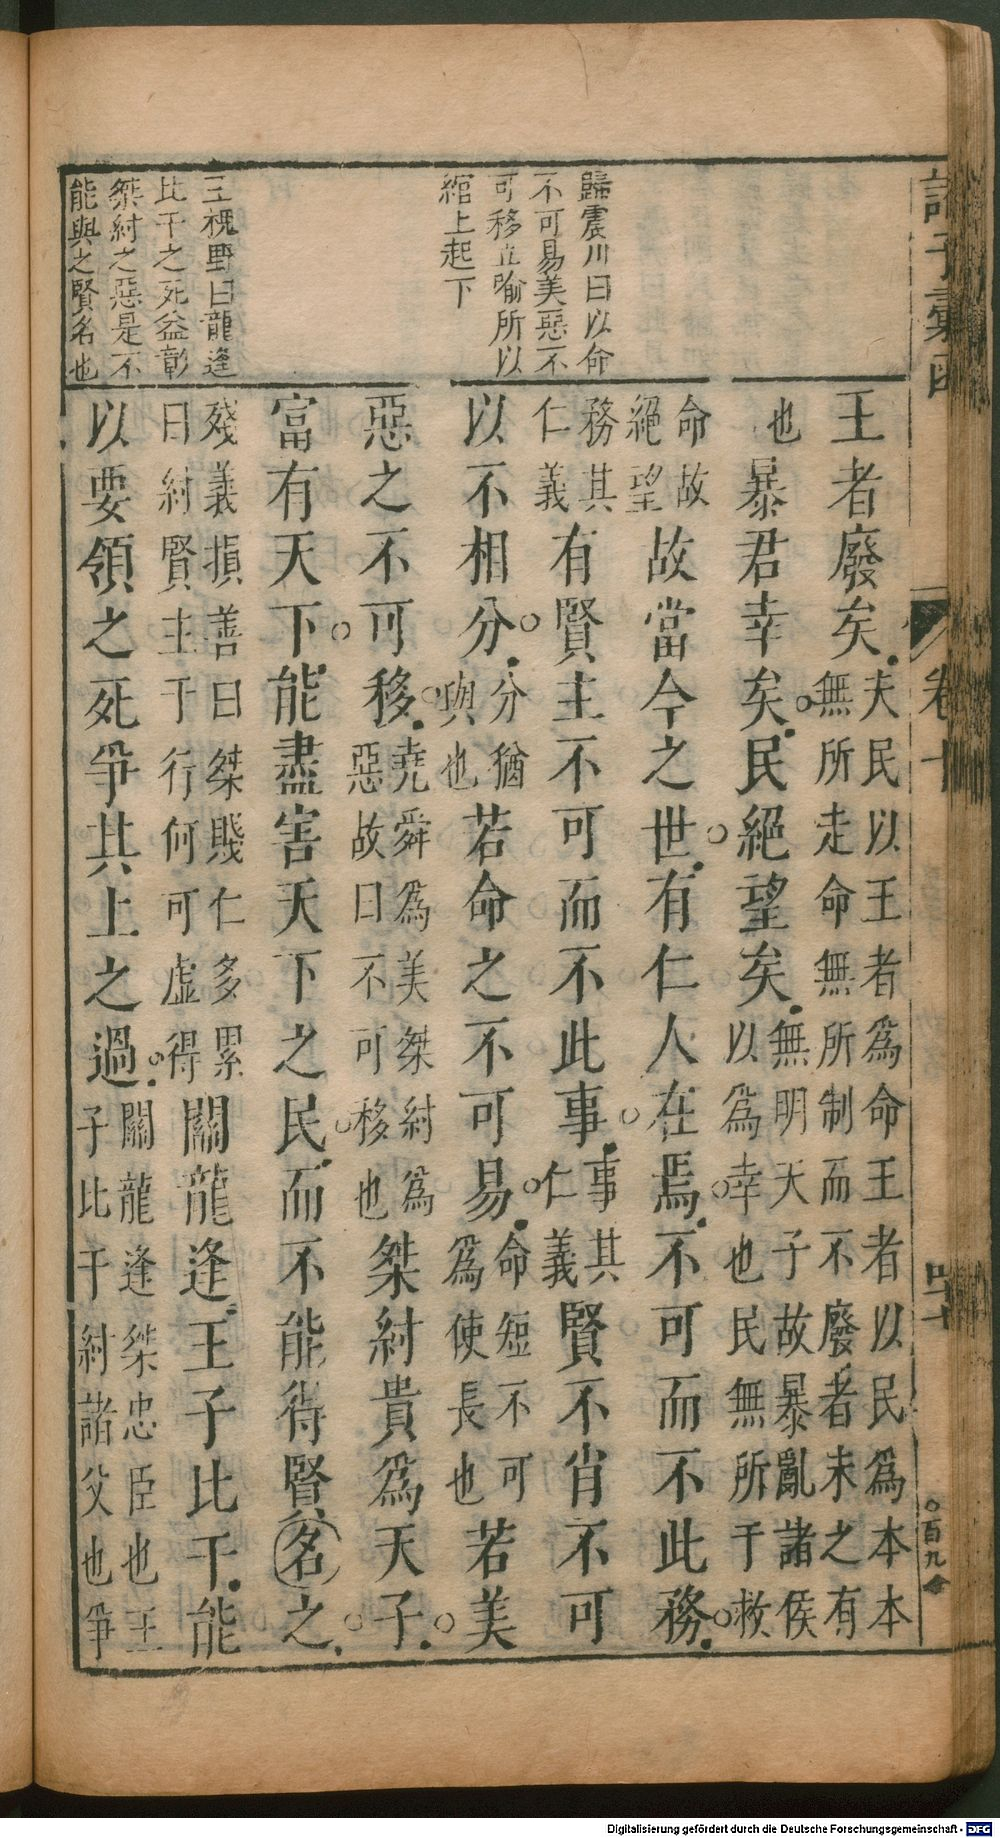 諸子彙函
卷十
四十
百九
歸震川曰以命
不可易美惡不
可移立喻所以
綰上起下
王槐野曰龍逢
比干之死益彰
桀紂之惡是不
能與之賢名也
王者廢矣夫民以王者爲命王者以民爲本本無所走命無所制而不廢者未之有
也暴君幸矣民絕望矣無明天子故暴亂諸侯以爲幸也民無所于救
命故絕望故當今之世有仁人在焉不可而不此務
務其仁義有賢主不可而不此事事其仁義賢不肖不可
以不相分分猶與也若命之不可易命短不可爲使長也若美
惡之不可移堯舜爲美桀紂爲惡故曰不可移也桀紂貴爲天子
富有天下能盡害天下之民而不能得賢名之
殘義損善曰桀賤仁多累曰紂賢主于行何可虛得關龍逢王子比干能
以要領之死爭其上之過關龍逢桀忠臣也王子比干紂諸父也爭
Digitalisierung gefördert durch die Deutsche Forschungsgemeinschaft - DFG